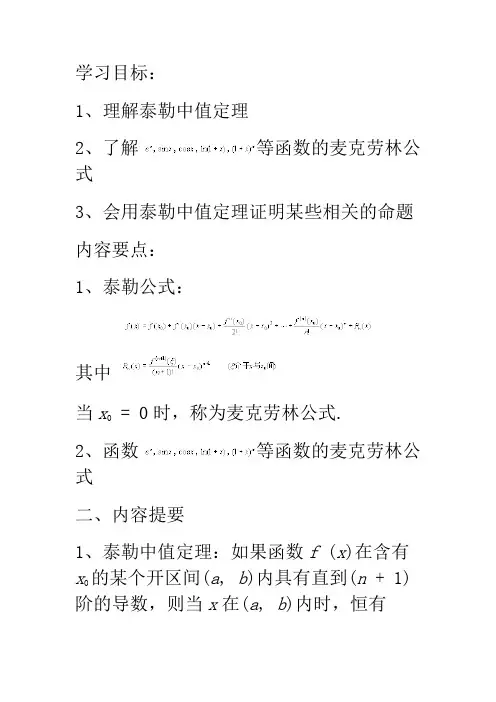 学习目标：
1、理解泰勒中值定理
2、了解 eˣ, sin x, cos x, ln(1 + x), (1 + x)ᵅ 等函数的麦克劳林公
式
3、会用泰勒中值定理证明某些相关的命题
内容要点：
1、泰勒公式：
f(x) = f(x₀) + f′(x₀)(x − x₀) + f″(x₀)/2! (x − x₀)² + ⋯ + f⁽ⁿ⁾(x₀)/n! (x − x₀)ⁿ + Rₙ(x)
其中 Rₙ(x) = f⁽ⁿ⁺¹⁾(ξ)/(n+1)! (x − x₀)ⁿ⁺¹
当x₀ = 0时，称为麦克劳林公式.
2、函数 eˣ, sin x, cos x, ln(1 + x), (1 + x)ᵅ 等函数的麦克劳林公
式
二、内容提要
1、泰勒中值定理：如果函数f (x)在含有
x₀的某个开区间(a, b)内具有直到(n + 1)
阶的导数，则当x在(a, b)内时，恒有